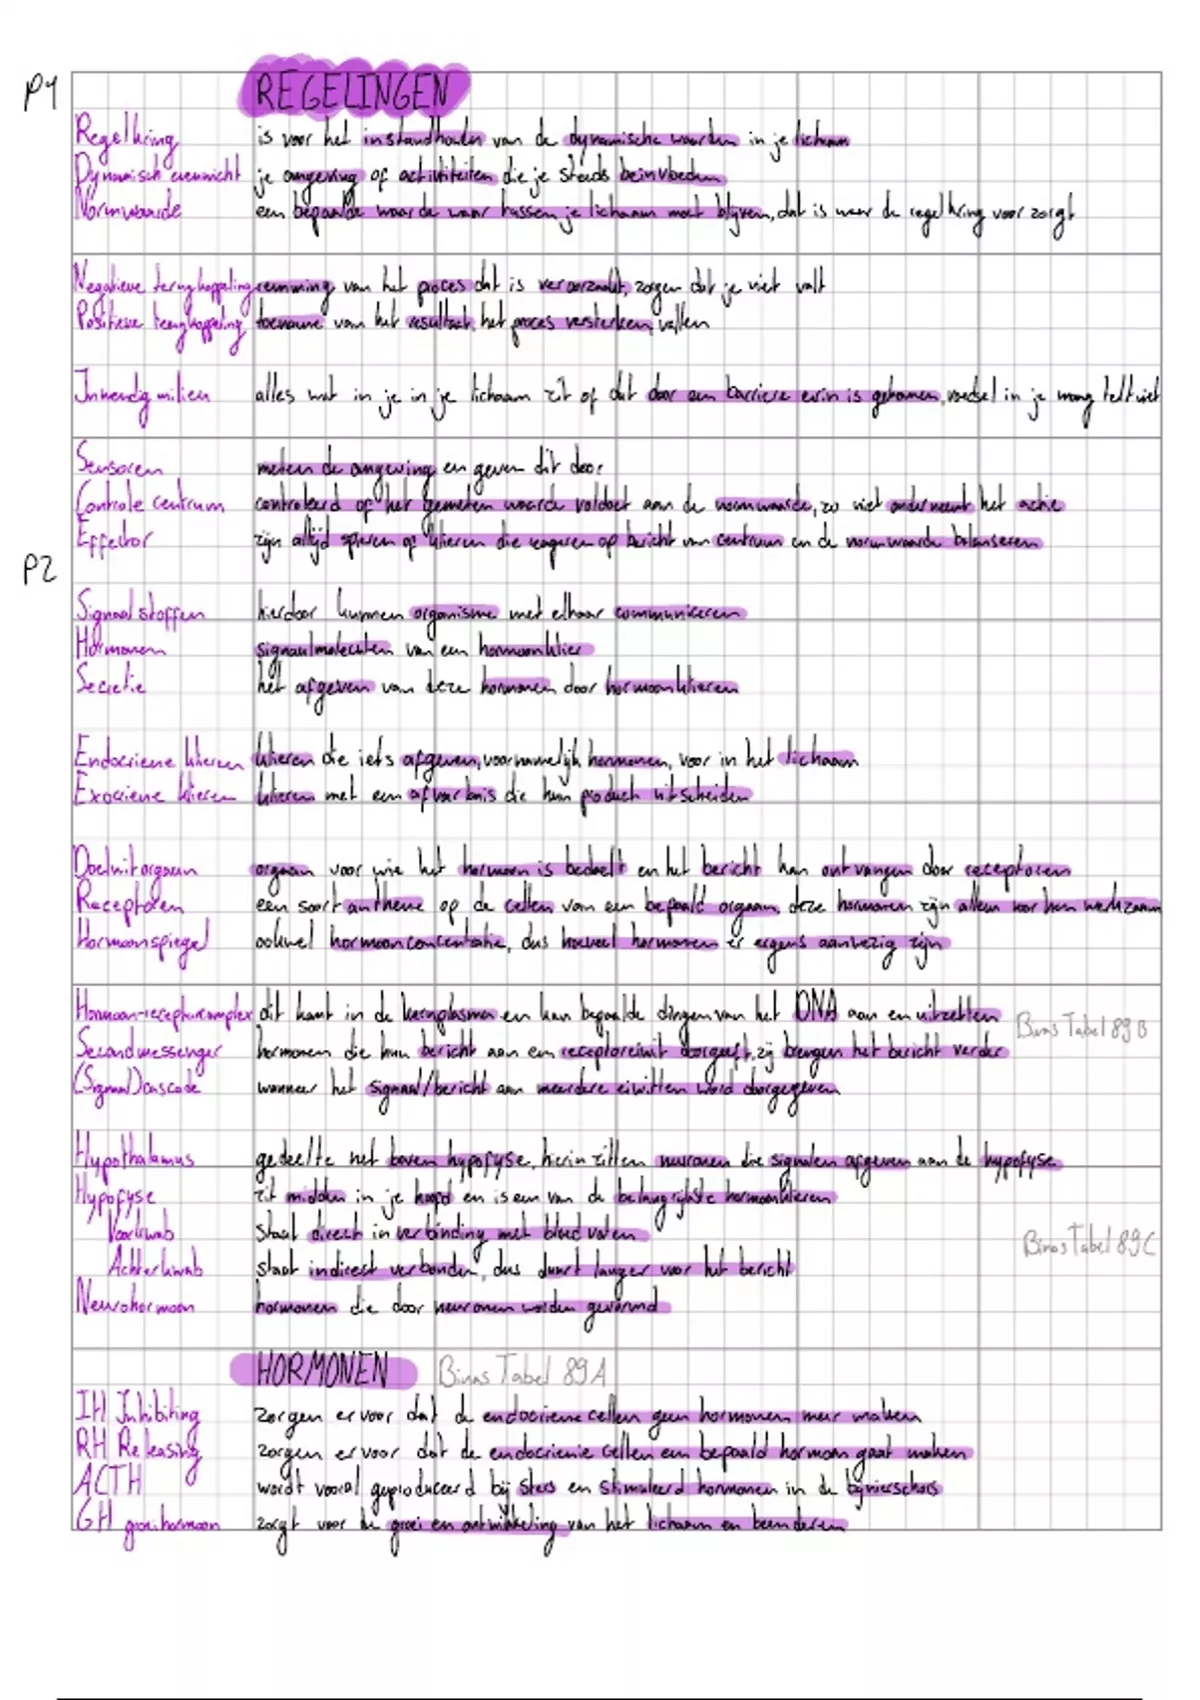 P1
REGELINGEN
Regelkring is voor het instandhouden van de dynamische waarden in je lichaam
Dynamisch evenwicht je omgeving of activiteiten die je steeds beïnvloeden
Normwaarde een bepaalde waarde waar tussen je lichaam moet blijven, dat is waar de regelkring voor zorgt
Negatieve terugkoppeling remming van het proces dat is veroorzaakt, zorgen dat je niet valt
Positieve terugkoppeling toename van het resultaat, het proces versterken, vallen
Inwendig milieu alles wat in je in je lichaam zit of dat door een barriere erin is gekomen, voedsel in je maag telt niet
Sensoren meten de omgeving en geven dit door
Controle centrum controleerd of het gemeten waarde voldoet aan de normwaarde, zo niet onderneemt het actie
Effector zijn altijd spieren of klieren die reageren op bericht van centrum en de normwaarde balanseren
P2
Signaalstoffen hierdoor kunnen organisme met elkaar communiceren
Hormonen signaalmolecuten van een hormoonklier
Secretie het afgeven van deze hormonen door hormoonklieren
Endocriene klieren klieren die iets afgeven, voornamelijk hormonen, voor in het lichaam
Exocriene klieren klieren met een afvoerbuis die hun product uitscheiden
Doelwitorgaan orgaan voor wie het hormoon is bedoelt en het bericht kan ontvangen door receptoren
Receptoren een soort antenne op de cellen van een bepaald orgaan, deze hormonen zijn alleen voor hen werkzaam
Hormoonspiegel ookwel hormoonconcentratie, dus hoeveel hormonen er ergens aanwezig zijn
Hormoon-receptorcomplex dit komt in de kernplasma en kan bepaalde dingen van het DNA aan en uitzetten
Binas Tabel 89B
Secondmessenger hormonen die hun bericht aan een receptoreiwit doorgeeft, zij brengen het bericht verder
(Signaal)cascade wanneer het signaal/bericht aan meerdere eiwitten word doorgegeven
Hypothalamus gedeelte net boven hypofyse, hierin zitten neuronen die signalen afgeven aan de hypofyse
Hypofyse zit midden in je hoofd en is een van de belangrijkste hormoonklieren
Voorkwab staat direct in verbinding met bloedvaten
Binas Tabel 89C
Achterkwab staat indirect verbonden, dus duurt langer voor het bericht
Neurohormoon hormonen die door neuronen worden gevormd
HORMONEN Binas Tabel 89A
IH Inhibiting zorgen ervoor dat de endocriene cellen geen hormonen meer maken
RH Releasing zorgen ervoor dat de endocrienie cellen een bepaald hormoon gaat maken
ACTH wordt vooral geproduceerd bij stess en stimuleerd hormonen in de bijnierschors
GH groeihormoon zorgt voor de groei en ontwikkeling van het lichaam en beenderen